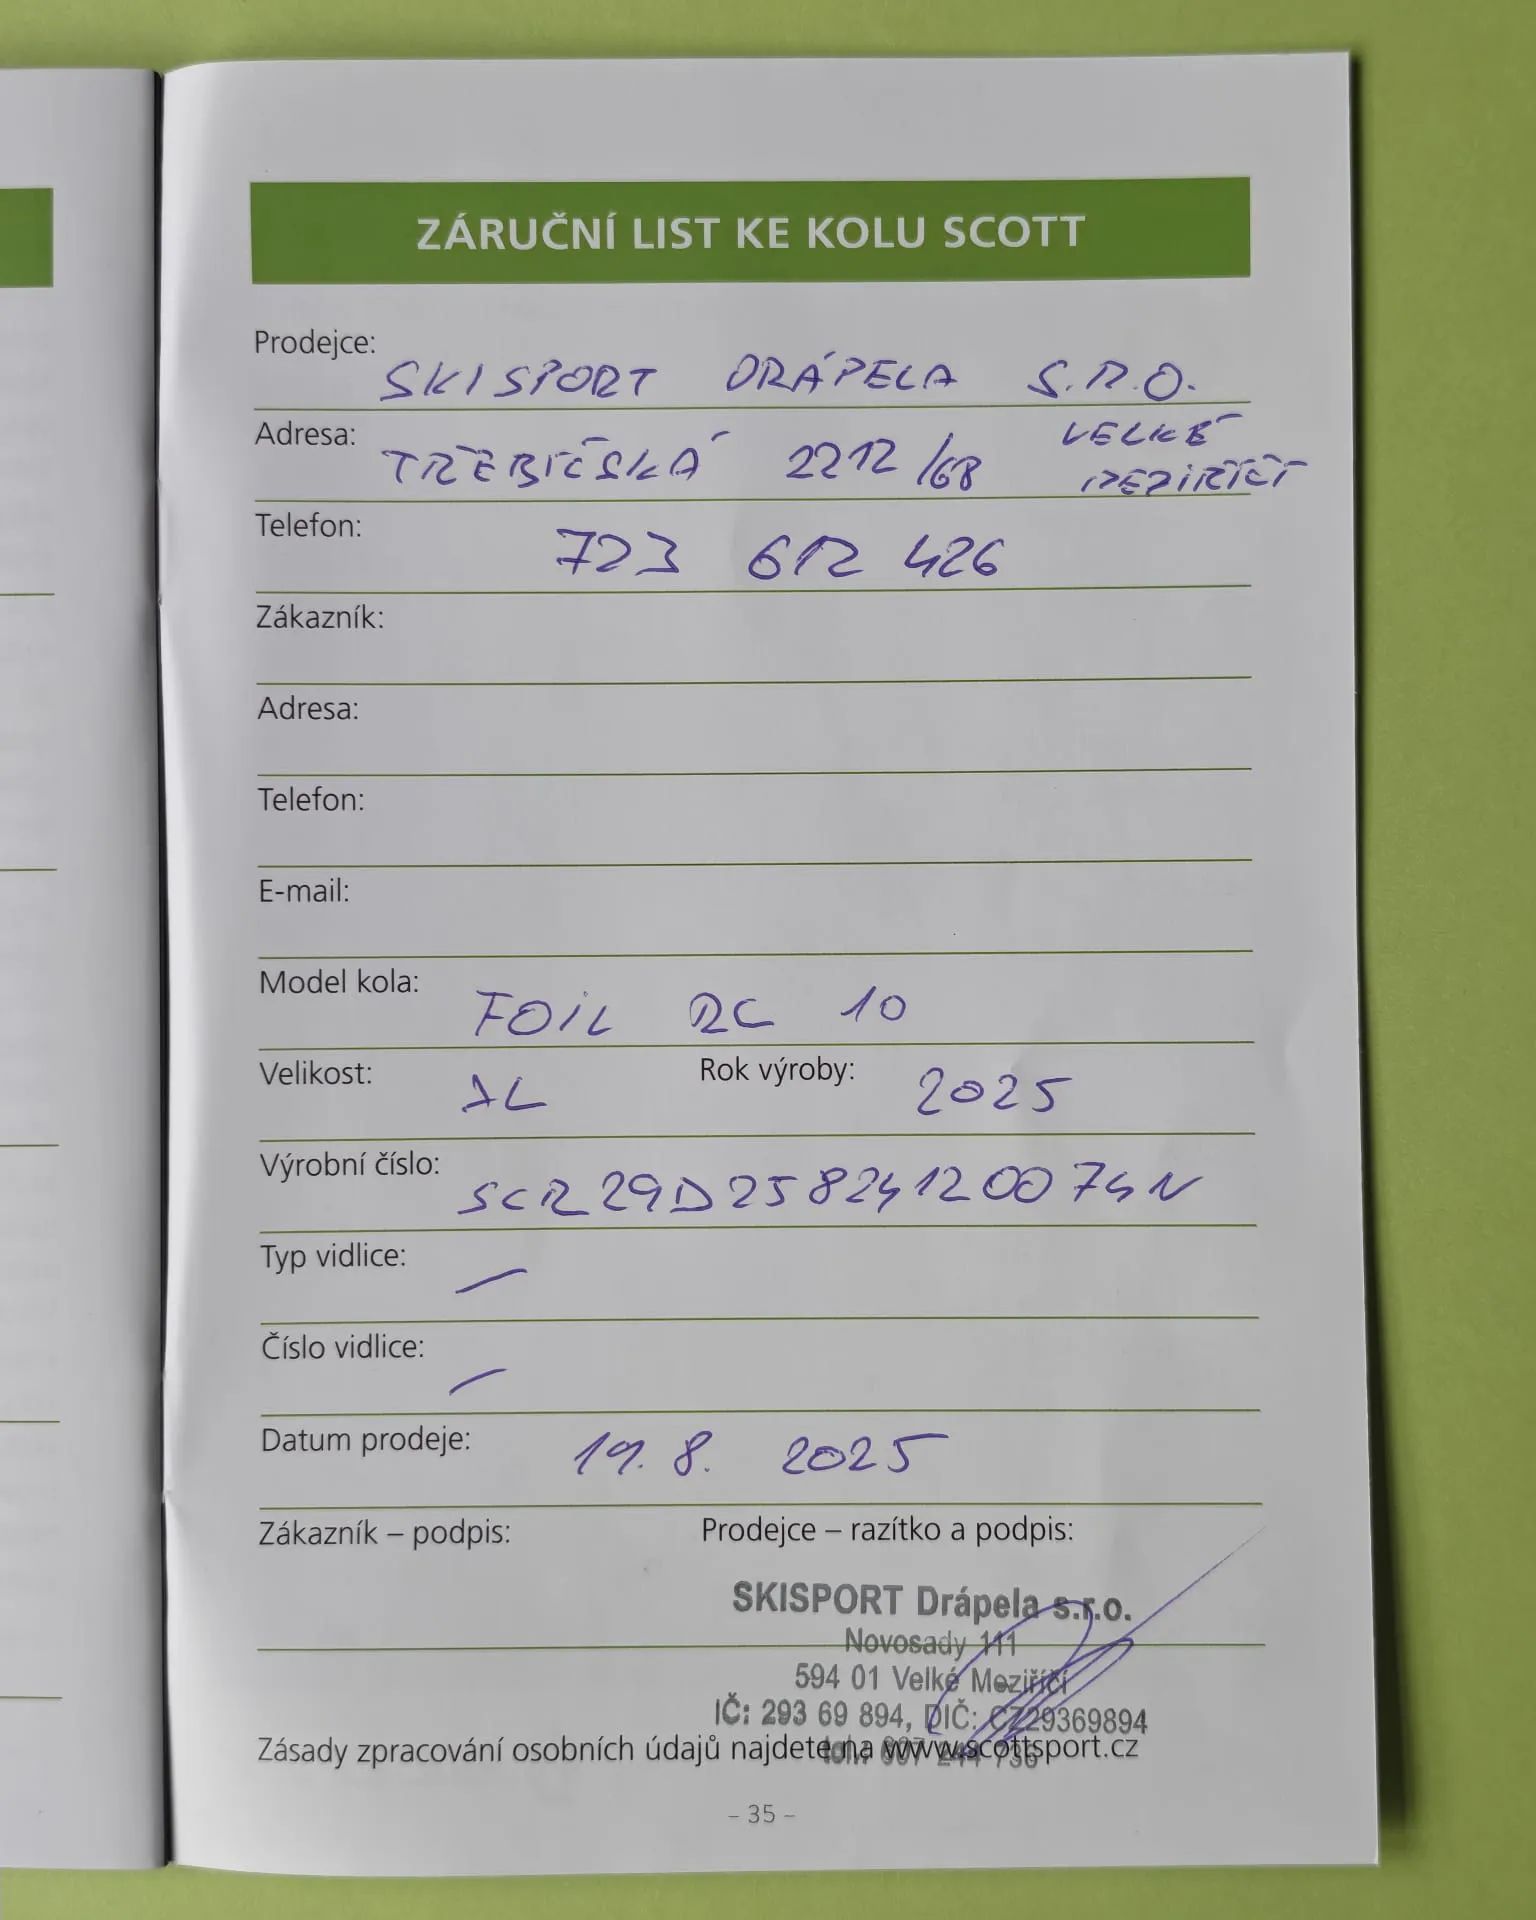 ZÁRUČNÍ LIST KE KOLU SCOTT
Prodejce: SKISPORT DRÁPELA S.R.O.
Adresa: TŘEBÍČSKÁ 2212/68 VELKÉ
MEZIŘÍČÍ
Telefon: 723 612 426
Zákazník:
Adresa:
Telefon:
E-mail:
Model kola: FOIL RC 10
Velikost: XL Rok výroby: 2025
Výrobní číslo: SCR29D25824120074N
Typ vidlice: –
Číslo vidlice: –
Datum prodeje: 19. 8. 2025
Zákazník – podpis: Prodejce – razítko a podpis:
SKISPORT Drápela s.r.o.
Novosady 111
594 01 Velké Meziříčí
IČ: 293 69 894, DIČ: CZ29369894
Zásady zpracování osobních údajů najdete na www.scottsport.cz
– 35 –